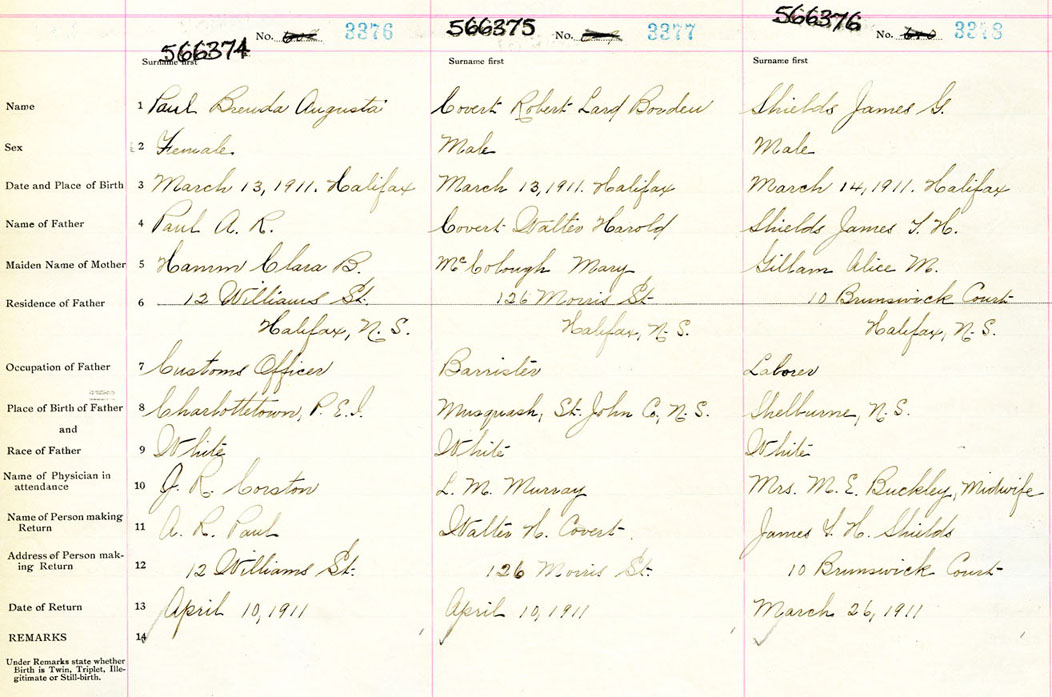 566374 No. 3376 566375 No. 3377 566376 No. 3378
Surname first Surname first Surname first
Name 1 Paul Brenda Augusta Covert Robert Lard Bowden Shields James G.
Sex 2 Female. Male Male
Date and Place of Birth 3 March 13, 1911. Halifax March 13, 1911. Halifax March 14, 1911. Halifax
Name of Father 4 Paul A. R. Covert Walter Harold Shields James H.
Maiden Name of Mother 5 Hamm Clara B. McColough Mary Gillam Alice M.
Residence of Father 6 12 Williams St. 126 Morris St. 10 Brunswick Court
Halifax, N.S. Halifax, N.S. Halifax, N.S.
Occupation of Father 7 Customs Officer Barrister Laborer
Place of Birth of Father 8 Charlottetown, P.E.I. Musquash, St. John Co, N.S. Shelburne, N.S.
and
Race of Father 9 White White White
Name of Physician in
attendance 10 J. R. Corston L. M. Murray Mrs. M. E. Buckley, Midwife
Name of Person making
Return 11 A. R. Paul Walter H. Covert James H. Shields
Address of Person mak-
ing Return 12 12 Williams St. 126 Morris St. 10 Brunswick Court
Date of Return 13 April 10, 1911 April 10, 1911 March 26, 1911
REMARKS 14
Under Remarks state whether
Birth is Twin, Triplet, Ille-
gitimate or Still-birth.